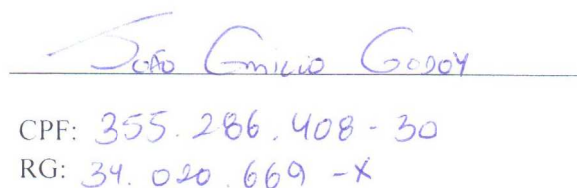 João Emilio Godoy
CPF: 355.286.408-30
RG: 34.020.669-X